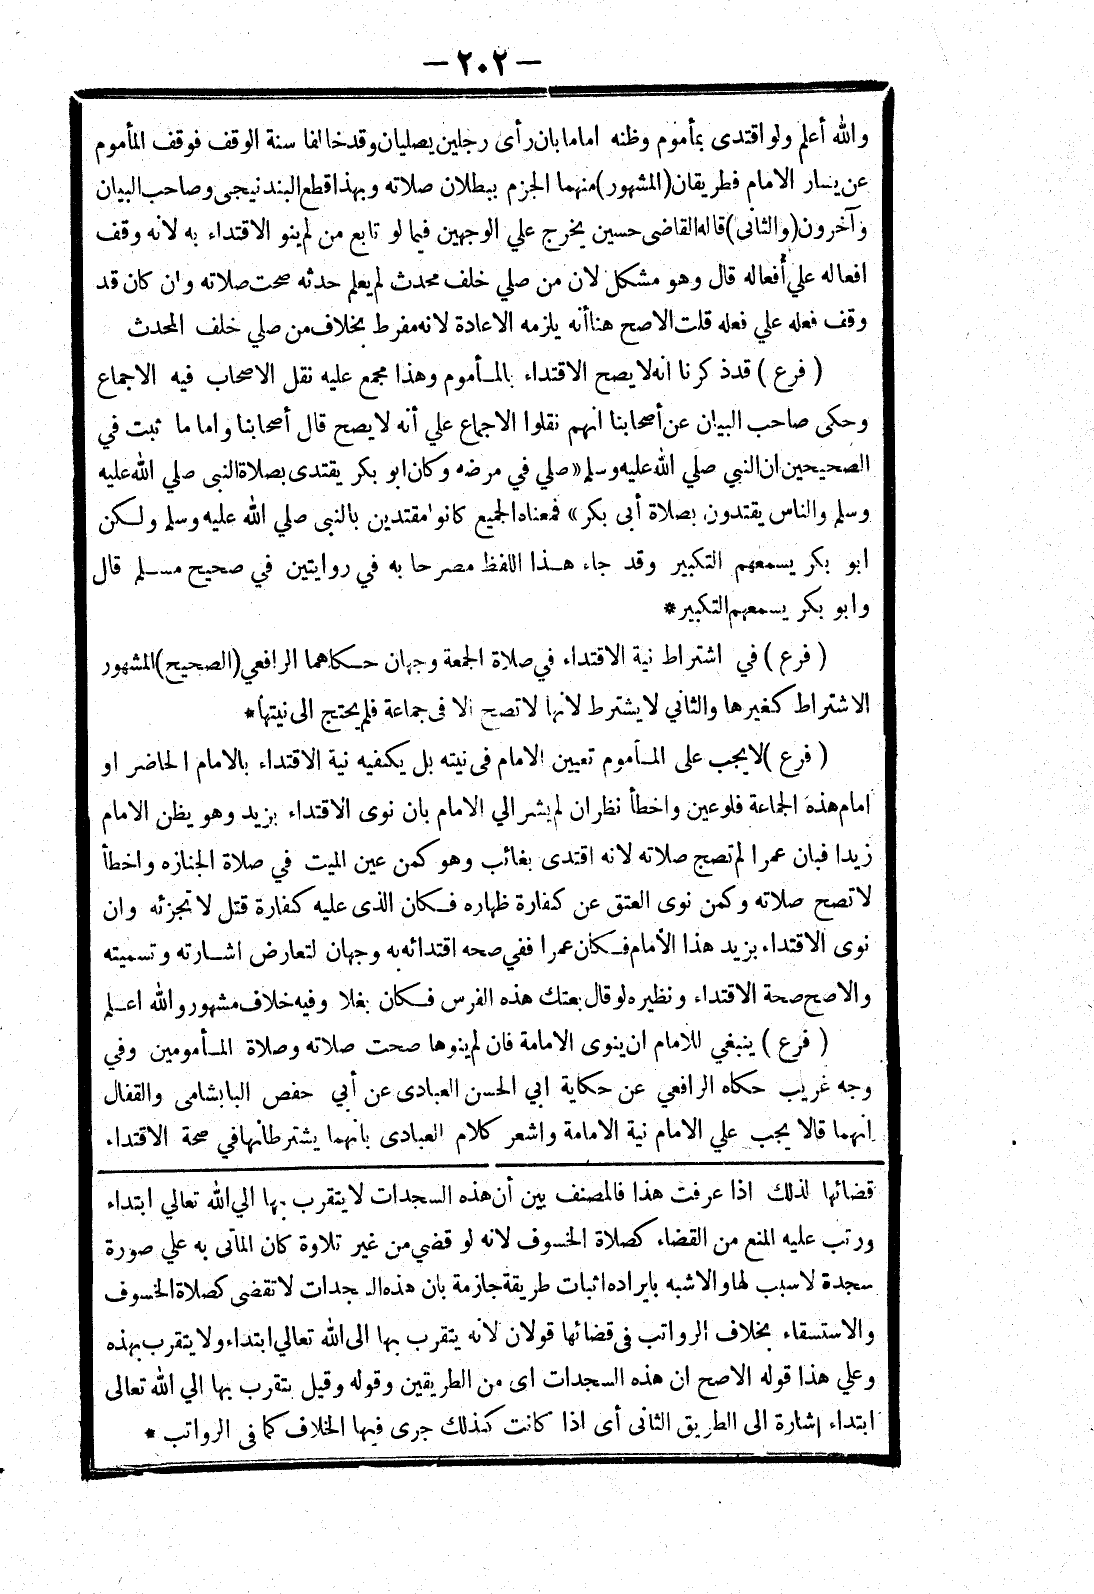 — ٢٠٢ —
والله أعلم ولو اقتدى بمأموم وظنه اماما بان رأى رجلين يصليان وقد خالفا سنة الوقف فوقف المأموم
عن يسار الامام فطريقان (المشهور) منهما الجزم ببطلان صلاته وبهذا قطع البندنيجى وصاحب البيان
وآخرون (والثانى) قاله القاضى حسين يخرج علي الوجهين فيما لو تابع من لم ينو الاقتداء به لانه وقف
افعاله علي أفعاله قال وهو مشكل لان من صلي خلف محدث لم يعلم حدثه صحت صلاته وان كان قد
وقف فعله علي فعله قلت الاصح هنا أنه يلزمه الاعادة لانه مفرط بخلاف من صلي خلف المحدث
(فرع) قد ذكرنا انه لا يصح الاقتداء بالمـأموم وهذا مجمع عليه نقل الاصحاب فيه الاجماع
وحكى صاحب البيان عن أصحابنا انهم نقلوا الاجماع علي أنه لا يصح قال أصحابنا واما ما ثبت في
الصحيحين ان النبي صلي الله عليه وسلم «صلي في مرضه وكان ابو بكر يقتدى بصلاة النبى صلي الله عليه
وسلم والناس يقتدون بصلاة أبى بكر» فمعناه الجميع كانوا مقتدين بالنبى صلي الله عليه وسلم ولـكن
ابو بكر يسمعهم التكبير وقد جاء هـذا اللفظ مصرحا به في روايتين في صحيح مسـلم قال
وابو بكر يسمعهم التكبير *
(فرع) في اشتراط نية الاقتداء في صلاة الجمعة وجهان حـكاهما الرافعي (الصحيح) المشهور
الاشتراط كغيرها والثاني لا يشترط لانها لا تصح الا فى جماعة فلم يحتج الى نيتها *
(فرع) لا يجب على المـأموم تعيين الامام فى نيته بل يكفيه نية الاقتداء بالامام الحاضر او
امام هذه الجماعة فلو عين واخطأ نظر ان لم يشر الي الامام بان نوى الاقتداء بزيد وهو يظن الامام
زيدا فبان عمرا لم تصح صلاته لانه اقتدى بغائب وهو كمن عين الميت في صلاة الجنازه واخطأ
لا تصح صلاته وكمن نوى العتق عن كفارة ظهاره فـكان الذى عليه كفارة قتل لا تجزئه وان
نوى الاقتداء بزيد هذا الأمام فـكان عمرا ففي صحه اقتدائه به وجهان لتعارض اشـارته وتسميته
والاصح صحة الاقتداء ونظيره لو قال بعتك هذه الفرس فـكان بغلا وفيه خلاف مشهور والله اعـلم
(فرع) ينبغي للامام ان ينوى الامامة فان لم ينوها صحت صلاته وصلاة المـأمومين وفي
وجه غريب حكاه الرافعي عن حكاية ابي الحسن العبادى عن أبي حفص البابشامى والقفال
انهما قالا يجب علي الامام نية الامامة واشعر كلام العبادى بانهما يشترطانها في صحة الاقتداء
قضائها لذلك اذا عرفت هذا فالمصنف بين أن هذه السجدات لا يتقرب بها الي الله تعالي ابتداء
ورتب عليه المنع من القضاء كصلاة الخسوف لانه لو قضي من غير تلاوة كان المآتى به علي صورة
سجدة لا سبب لها والاشبه بايراده اثبات طريقة جازمة بان هذه السجدات لا تقضى كصلاة الخسوف
والاستسقاء بخلاف الرواتب فى قضائها قولان لانه يتقرب بها الى الله تعالي ابتداء ولا يتقرب بهذه
وعلي هذا قوله الاصح ان هذه السجدات اى من الطريقين وقوله وقيل يتقرب بها الي الله تعالى
ابتداء إشارة الى الطريق الثانى أى اذا كانت كذلك جرى فيها الخلاف كما فى الرواتب *